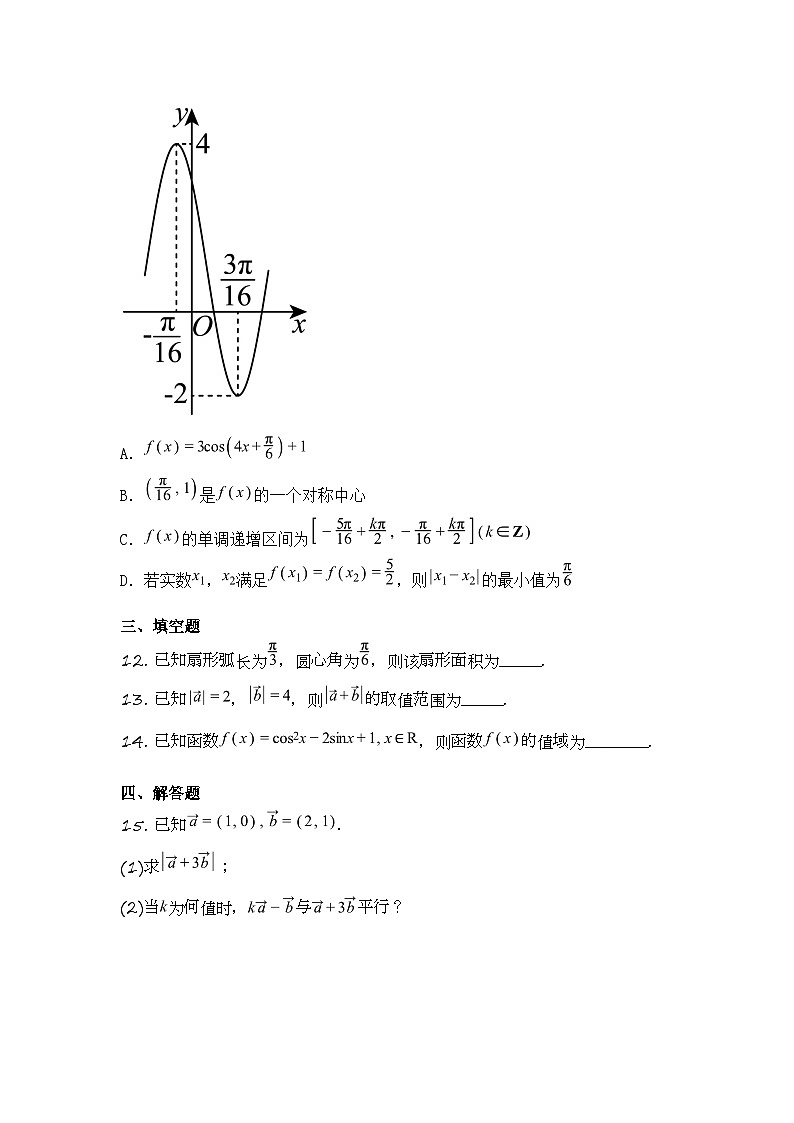 y
4
3π/16
-π/16
O
x
-2
A．f(x)=3cos(4x+π/6)+1
B．(π/16,1)是f(x)的一个对称中心
C．f(x)的单调递增区间为[-5π/16+kπ/2,-π/16+kπ/2](k∈Z)
D．若实数x₁，x₂满足f(x₁)=f(x₂)=5/2，则|x₁-x₂|的最小值为π/6
三、填空题
12．已知扇形弧长为π/3，圆心角为π/6，则该扇形面积为_____.
13．已知|a⃗|=2，|b⃗|=4，则|a⃗+b⃗|的取值范围为_____.
14．已知函数f(x)=cos²x-2sinx+1,x∈R，则函数f(x)的值域为_______.
四、解答题
15．已知a⃗=(1,0),b⃗=(2,1).
(1)求|a⃗+3b⃗|；
(2)当k为何值时，ka⃗-b⃗与a⃗+3b⃗平行？